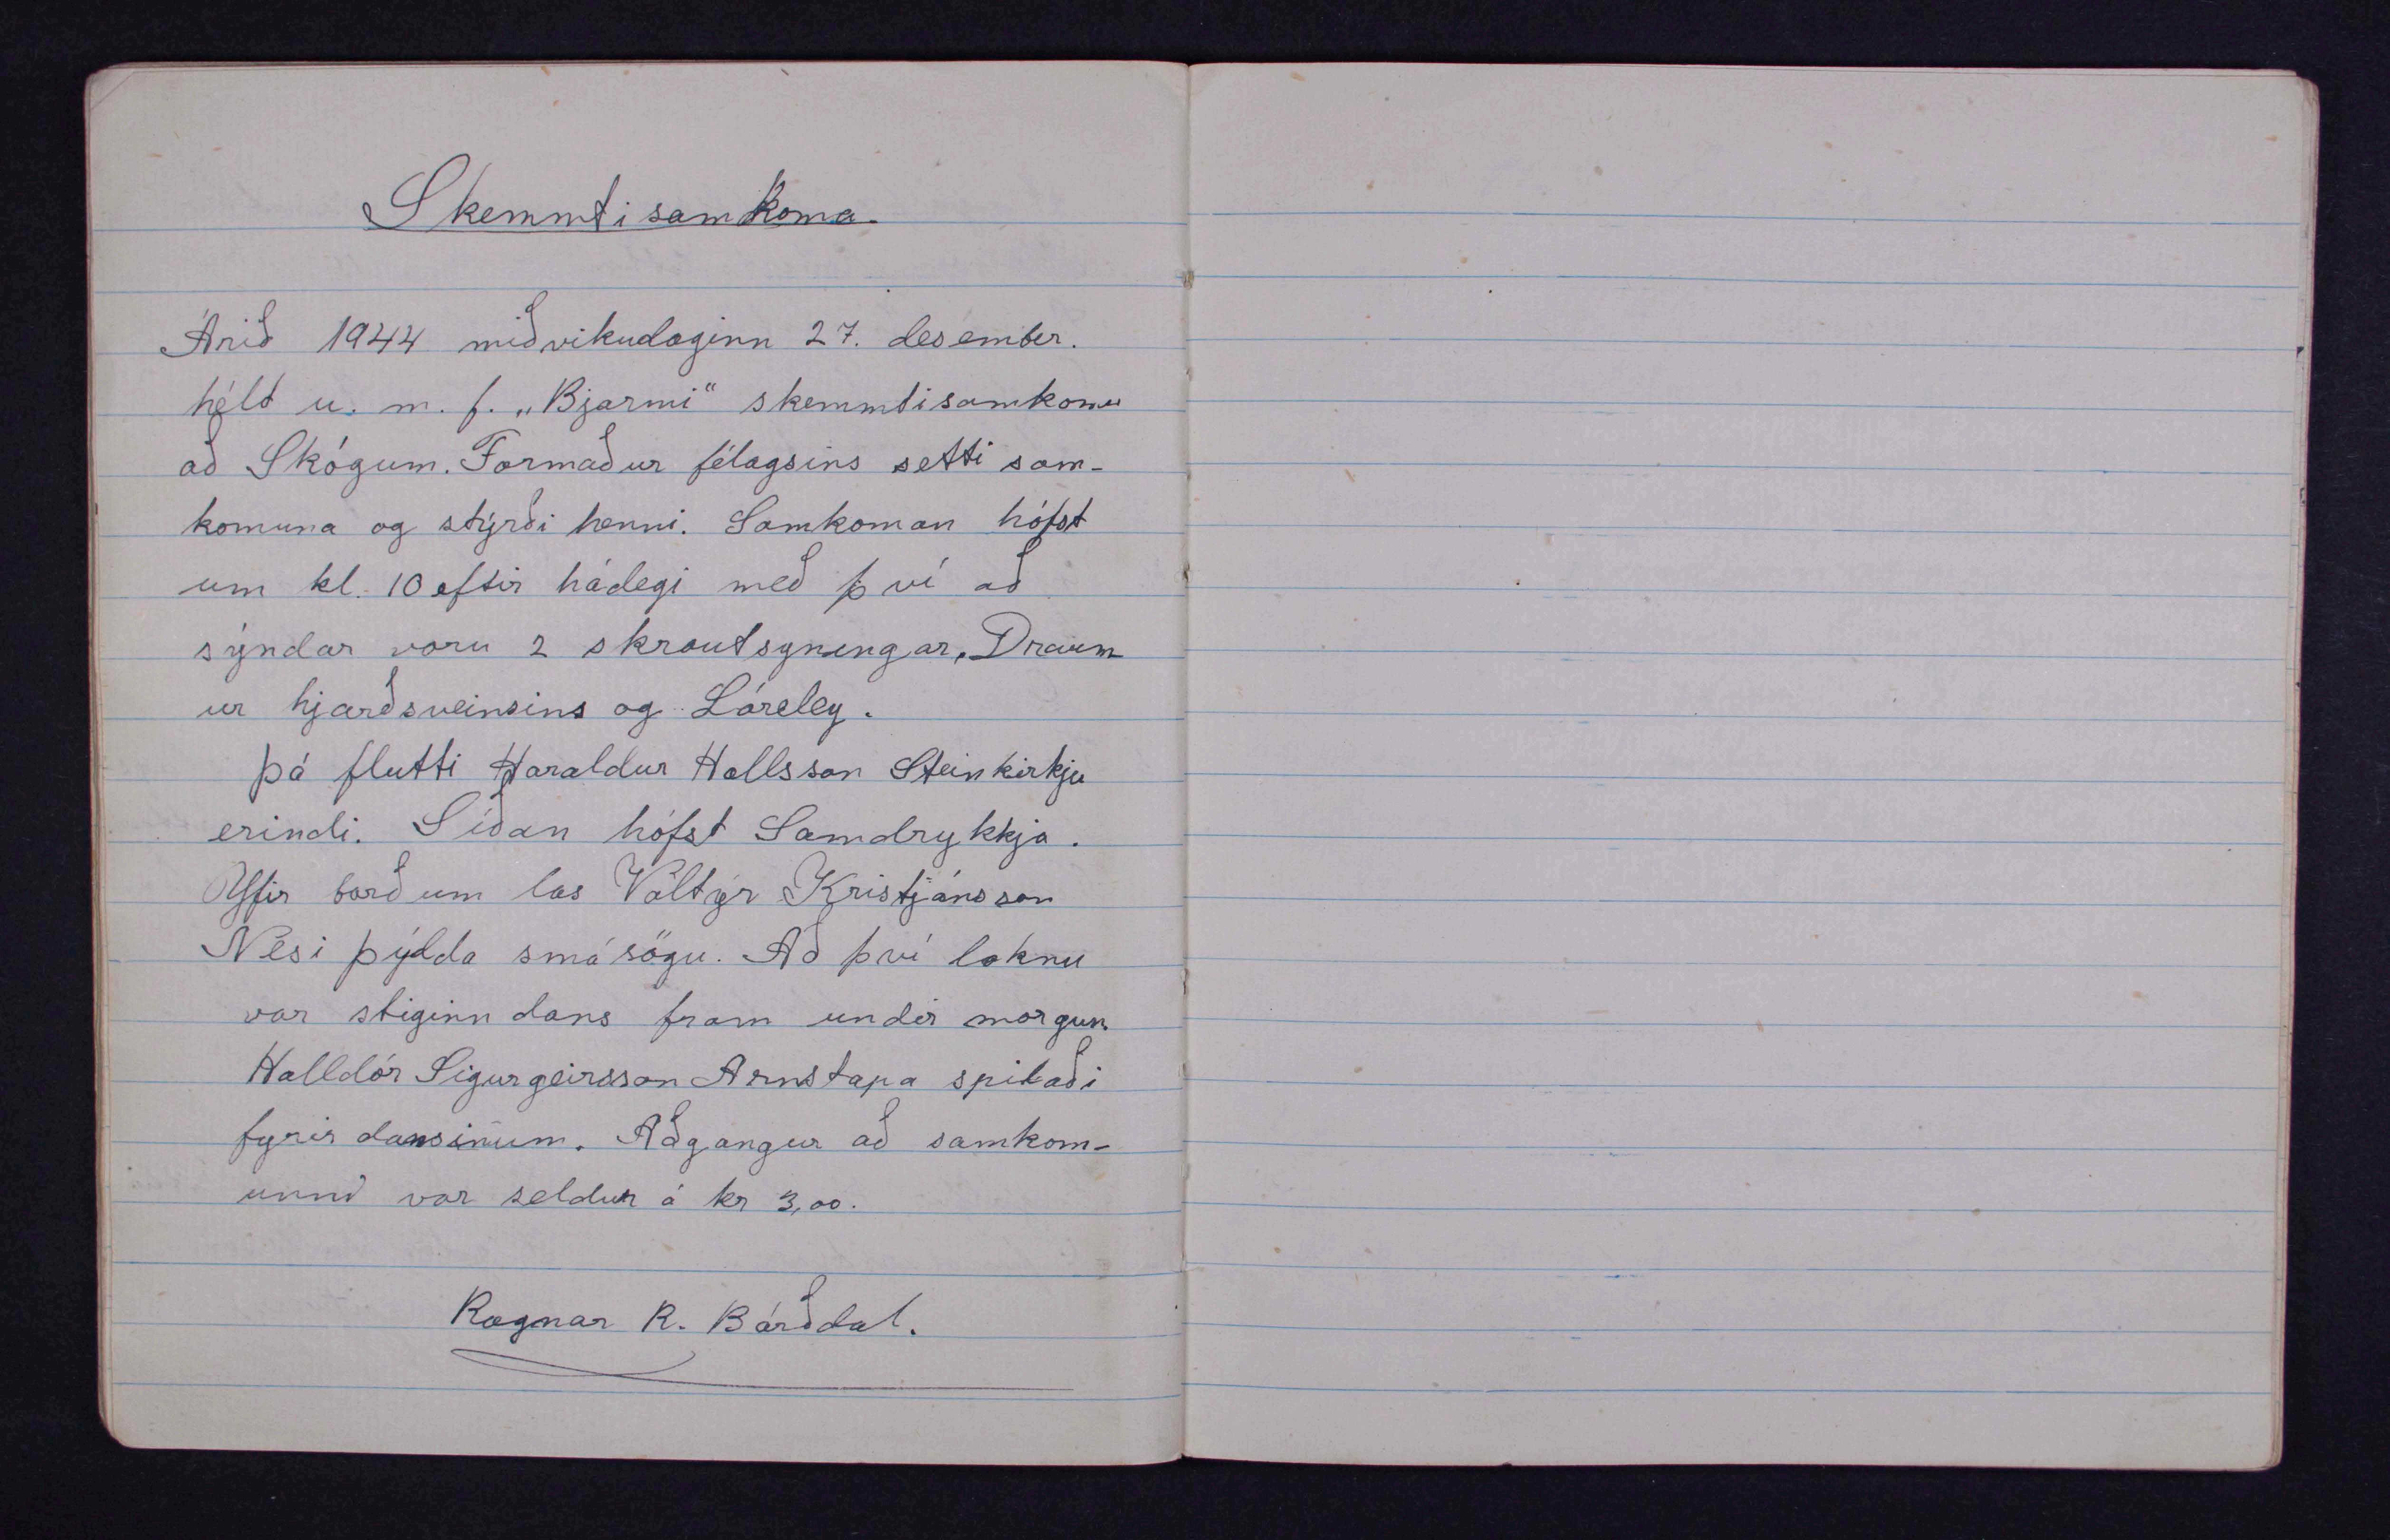 Skemmtisamkoma.
Árið 1944 miðvikudaginn 27. desember.
hélt u. m. f. „Bjarmi“ skemmtisamkomu
að Skógum. Formaður félagsins setti sam-
komuna og stýrði henni. Samkoman hófst
um kl. 10 eftir hádegi með því að
sýndar voru 2 skrautsyningar, Draum
ur hjarðsveinsins og Lóreley.
Þá flutti Haraldur Hallsson Steinkirkju
erindi. Síðan hófst Samdrykkja.
Yfir borðum las Valtýr Kristjánsson
Nesi þýdda smásögu. Að því loknu
var stiginn dans fram undir morgun
Halldór Sigurgeirsson Arnstapa spilaði
fyrir dansinum. Aðgangur að samkom-
unni var seldur á kr 3,00.
Ragnar R. Bárðdal.